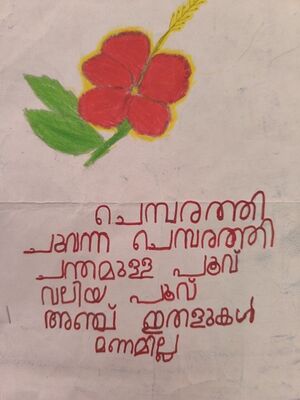 ചെമ്പരത്തി
ചുവന്ന ചെമ്പരത്തി
ചന്തമുള്ള പൂവ്
വലിയ പൂവ്
അഞ്ച് ഇതളുകൾ
മണമില്ല